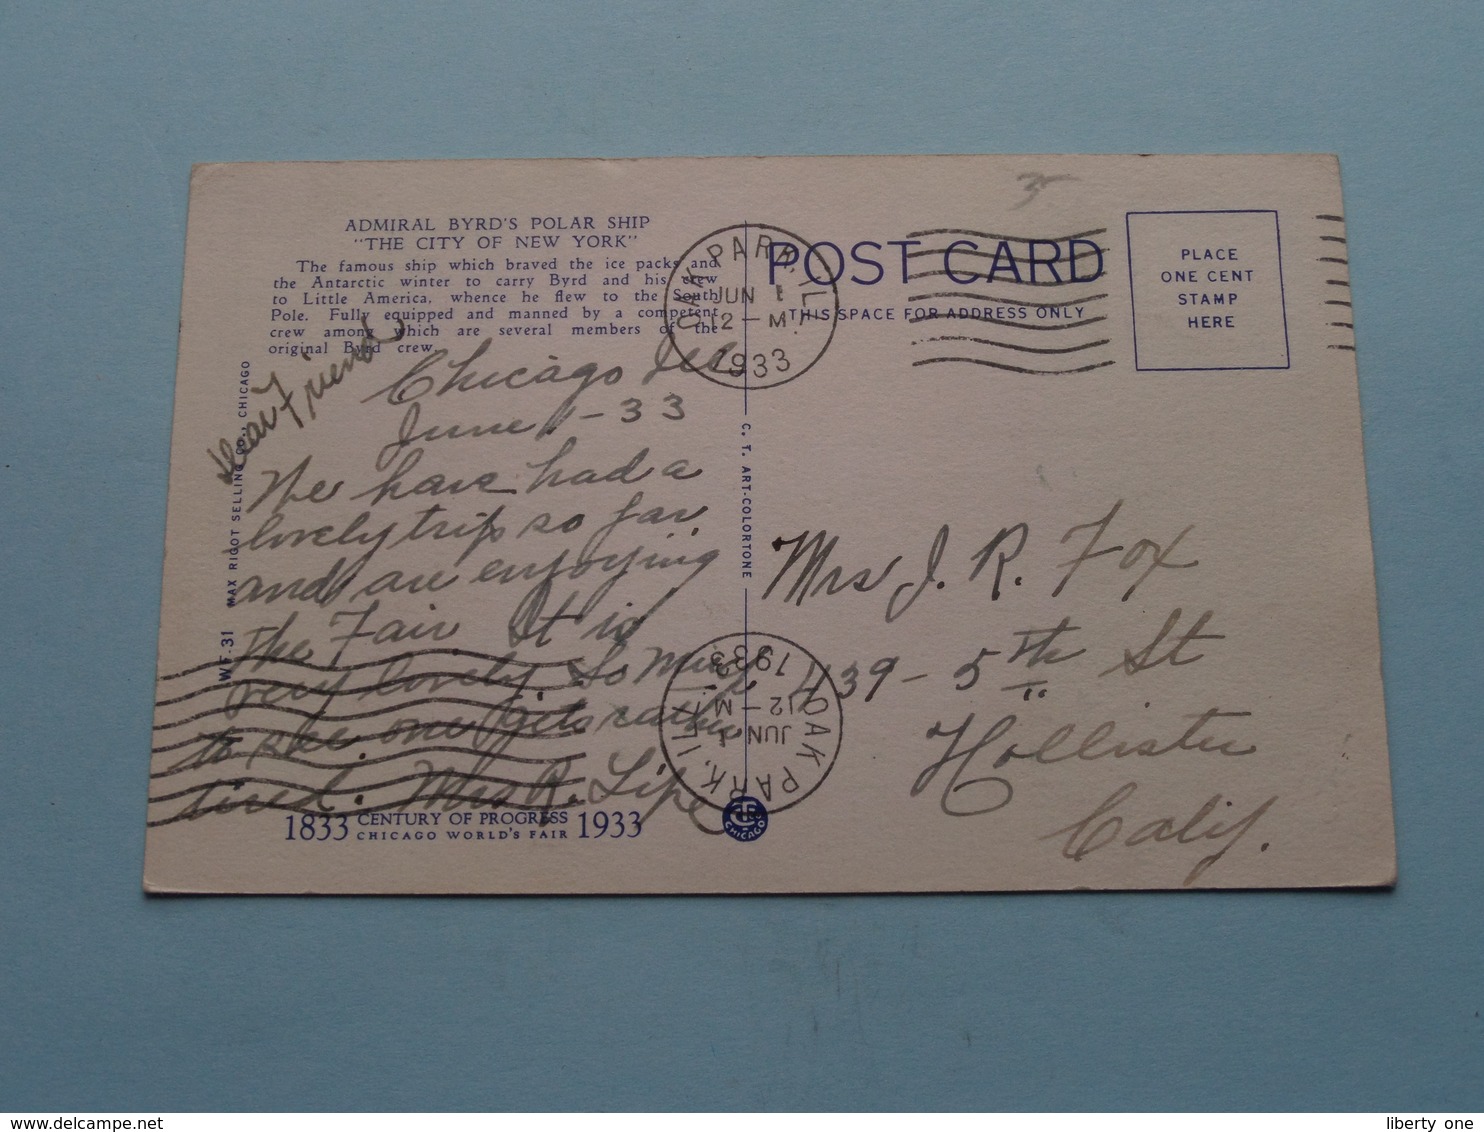 ADMIRAL BYRD'S POLAR SHIP
"THE CITY OF NEW YORK"
The famous ship which braved the ice packs and
the Antarctic winter to carry Byrd and his crew
to Little America, whence he flew to the South
Pole. Fully equipped and manned by a competent
crew among which are several members of the
original Byrd crew.
Dear Friend
Chicago Ill
June 1-33
We have had a
lovely trip so far
and are enjoying
the Fair. It is
very lovely. So much
to see. one gets rather
tired. Mrs R. Lipe
1833 CENTURY OF PROGRESS 1933
CHICAGO WORLD'S FAIR
W.F. 31 MAX RIGOT SELLING CO., CHICAGO
C. T. ART-COLORTONE
CHICAGO
OAK PARK, ILL.
JUN 1
12-M
1933
OAK PARK, ILL.
JUN 1
12-M
1933
POST CARD
THIS SPACE FOR ADDRESS ONLY
PLACE
ONE CENT
STAMP
HERE
Mrs J. R. Fox
439-5th St
Hollister
Calif.
liberty one